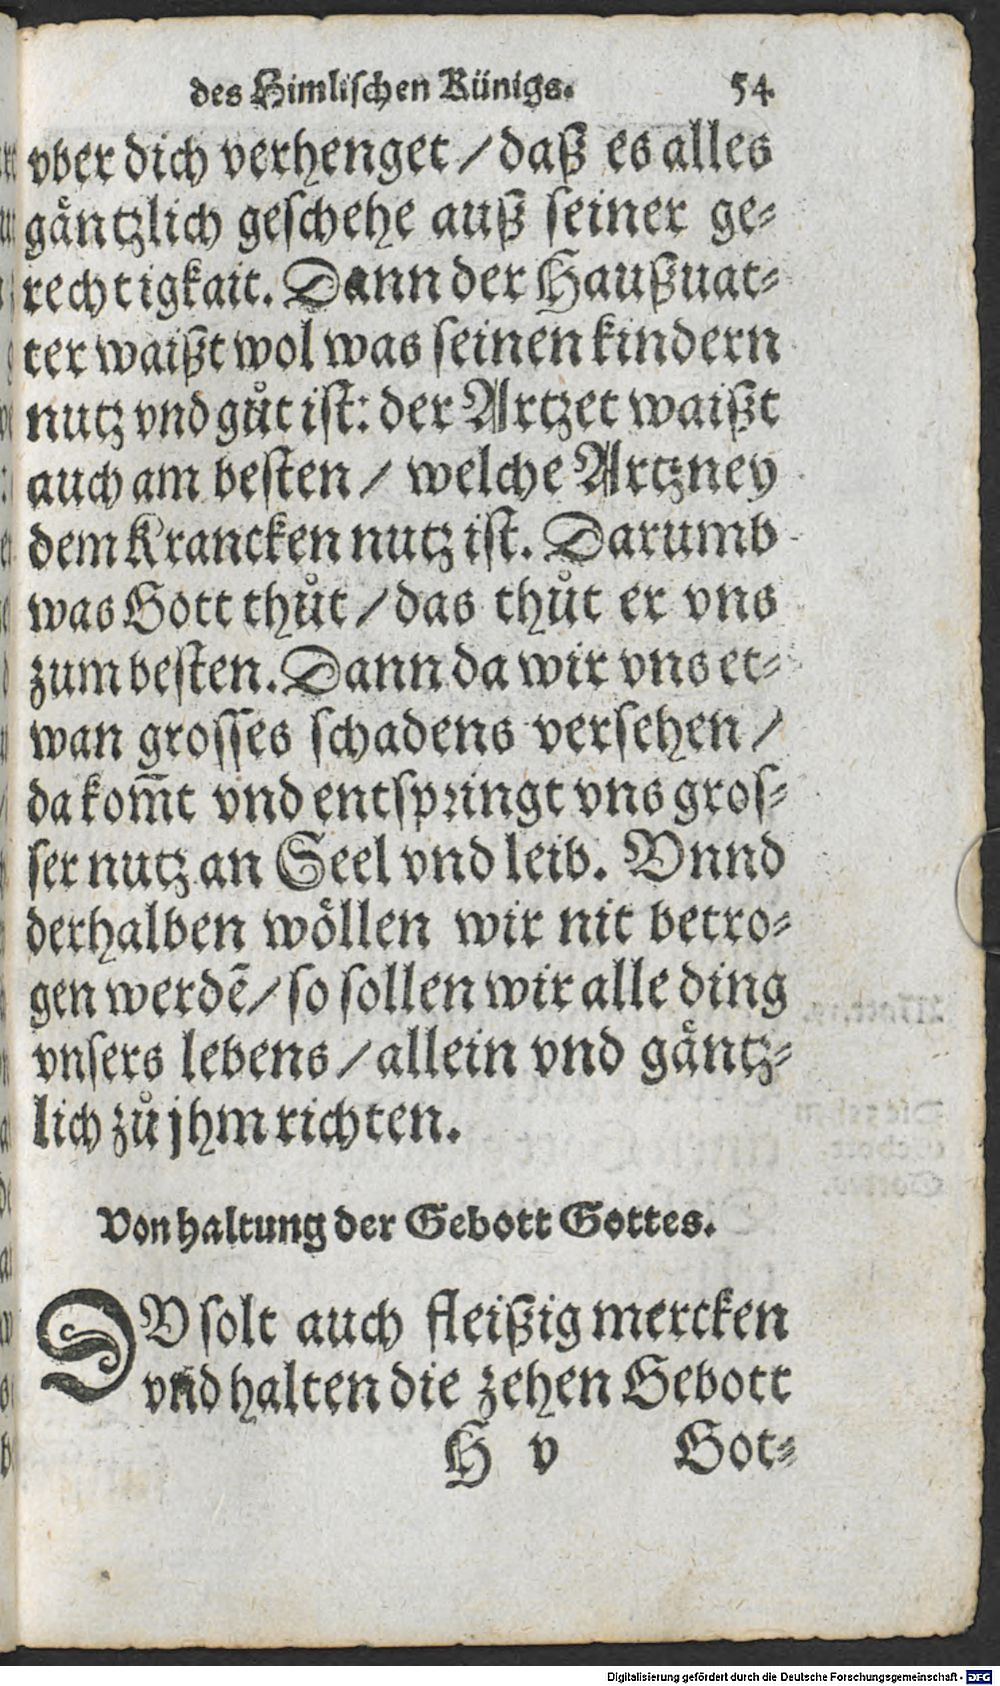 des Himlischen Künigs. 54.
vber dich verhenget / daß es alles
gäntzlich geschehe auß seiner ge-
rechtigkait. Dann der Haußuat-
ter waißt wol was seinen kindern
nutz vnd gůt ist: der Artzet waißt
auch am besten / welche Artzney
dem Krancken nutz ist. Darumb
was Gott thůt / das thůt er vns
zum besten. Dann da wir vns et-
wan grosses schadens versehen /
da kom̃t vnd entspringt vns gros-
ser nutz an Seel vnd leib. Vnnd
derhalben wöllen wir nit betro-
gen werdẽ / so sollen wir alle ding
vnsers lebens / allein vnd gäntz-
lich zů jhm richten.
Von haltung der Gebott Gottes.
DV solt auch fleißig mercken
vnd halten die zehen Gebott
H v Got-
Digitalisierung gefördert durch die Deutsche Forschungsgemeinschaft - DFG